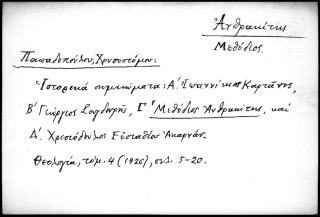 Ἀνθρακίτης
Μεθόδιος.
Παπαδοπούλου, Χρυσοστόμου:
Ἱστορικὰ σημειώματα: Α΄. Ἰωαννίκιος Καρτᾶνος,
Β΄ Γεώργιος Σουγδουρῆς, Γ΄ Μεθόδιος Ἀνθρακίτης, καὶ
Δ΄. Χριστόδουλος Εὐσταθίου Ἀκαρνάν.
Θεολογία, τόμ. 4 (1926), σελ. 5-20.